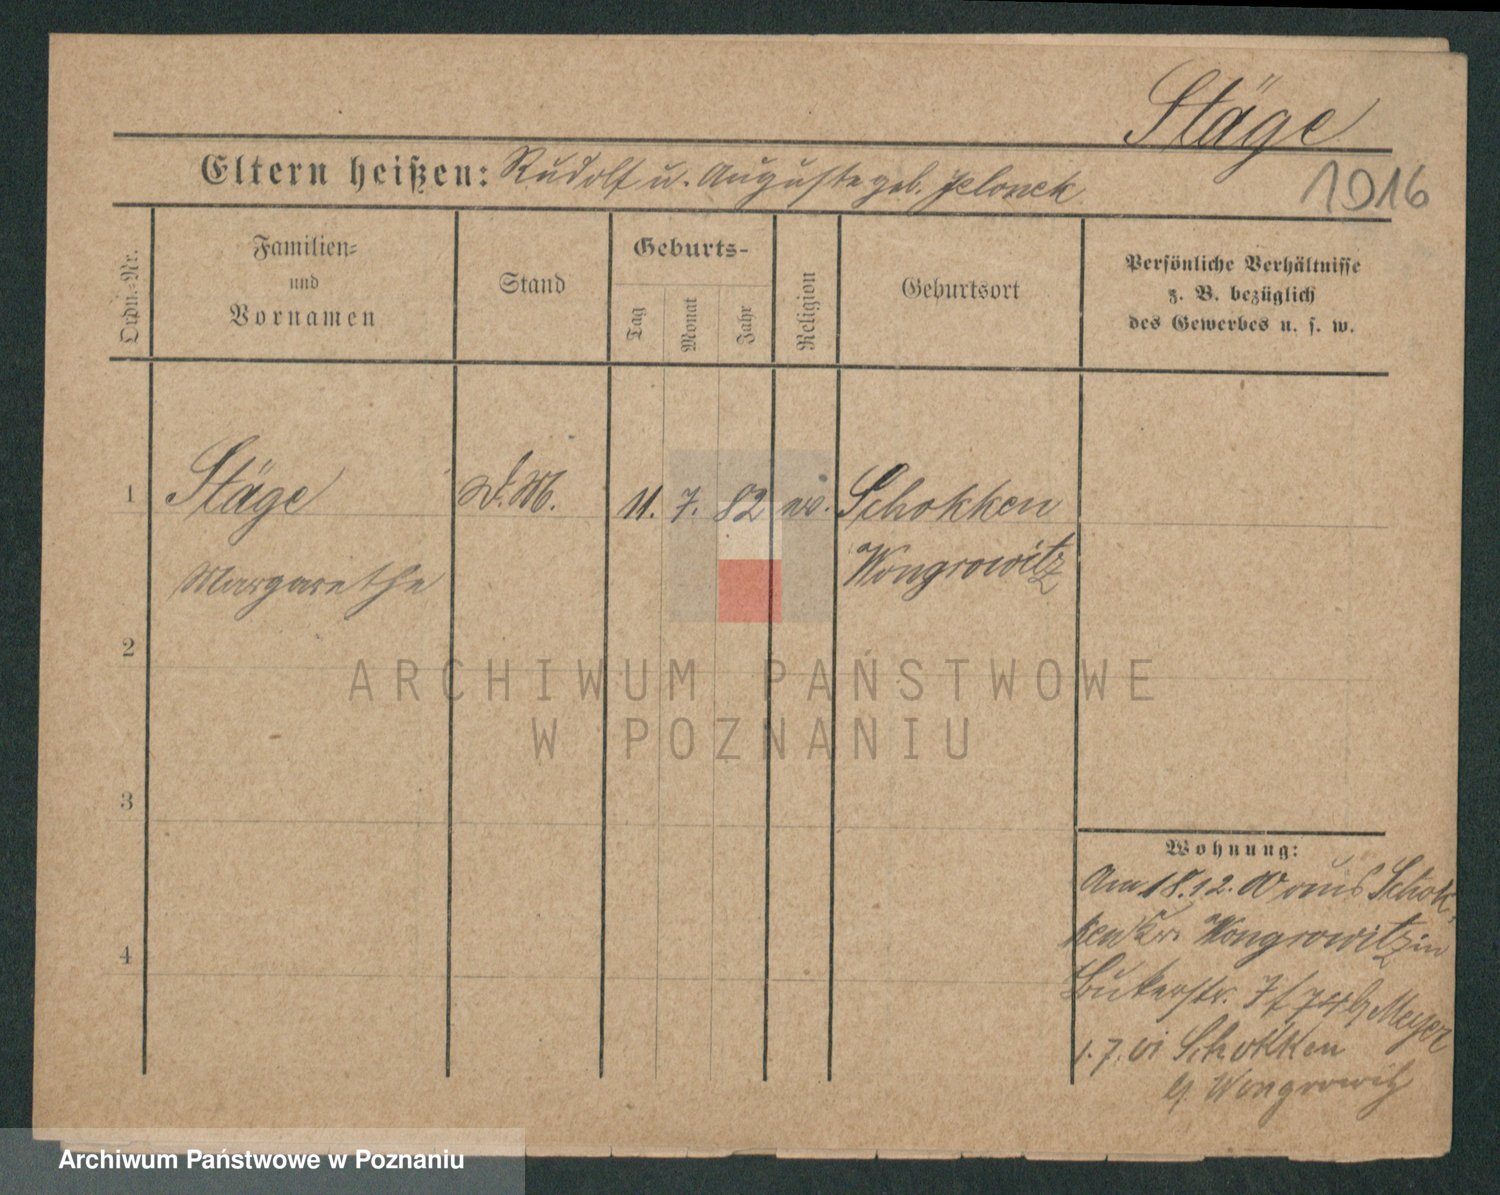 Stäge
Eltern heißen: Rudolf u. Auguste geb. Jelonek
1916
Ordn.-Nr.
Familien-
und
Vornamen
Stand
Geburts-
Tag
Monat
Jahr
Religion
Geburtsort
Persönliche Verhältnisse
z. B. bezüglich
des Gewerbes u. s. w.
1 Stäge D. M. 11. 7. 82 ev. Schokken
Margarethe Wongrowitz
2
3
4
ARCHIWUM PAŃSTWOWE
W POZNANIU
Wohnung:
Am 18.12.00 aus Schok-
ken Kr. Wongrowitz in
Bukerstr. 7 Meyer
1.7.01 Schokken
Wongrowitz
Archiwum Państwowe w Poznaniu